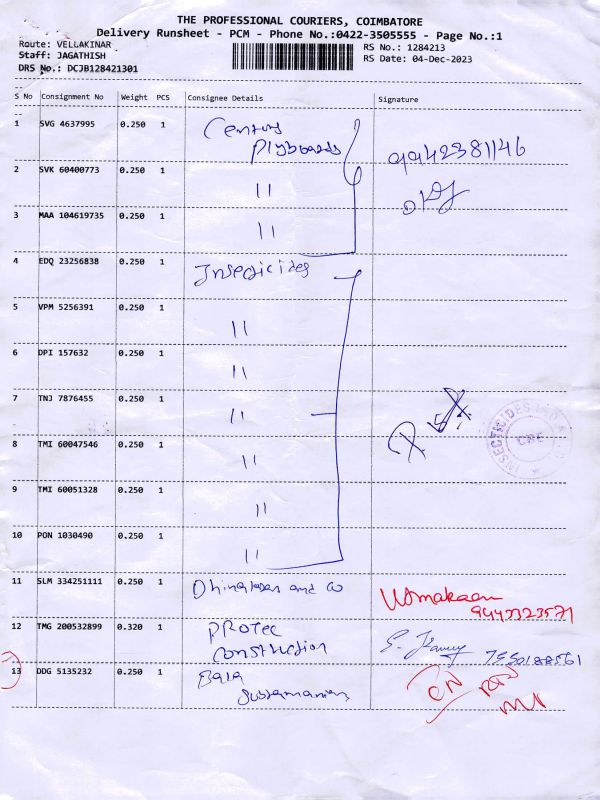 THE PROFESSIONAL COURIERS, COIMBATORE
Delivery Runsheet - PCM - Phone No.:0422-3505555 - Page No.:1
Route: VELLAKINAR
Staff: JAGATHISH
DRS No.: DCJB128421301
RS No.: 1284213
RS Date: 04-Dec-2023
S No Consignment No Weight PCS Consignee Details Signature
1 SVG 4637995 0.250 1 Century
Plyboards 9942381146
2 SVK 60400773 0.250 1 "
3 MAA 104619735 0.250 1 "
4 EDQ 23256838 0.250 1 Insecticides
5 VPM 5256391 0.250 1 "
6 DPI 157632 0.250 1 "
7 TNJ 7876455 0.250 1 "
INSECTICIDES
CBE
8 TMI 60047546 0.250 1 "
9 TMI 60051328 0.250 1 "
10 PON 1030490 0.250 1 "
11 SLM 334251111 0.250 1 and co
9443323571
12 TMG 200532899 0.320 1 PROTEC
Construction 7550188561
13 DDG 5135232 0.250 1 Bala
Subramaniam